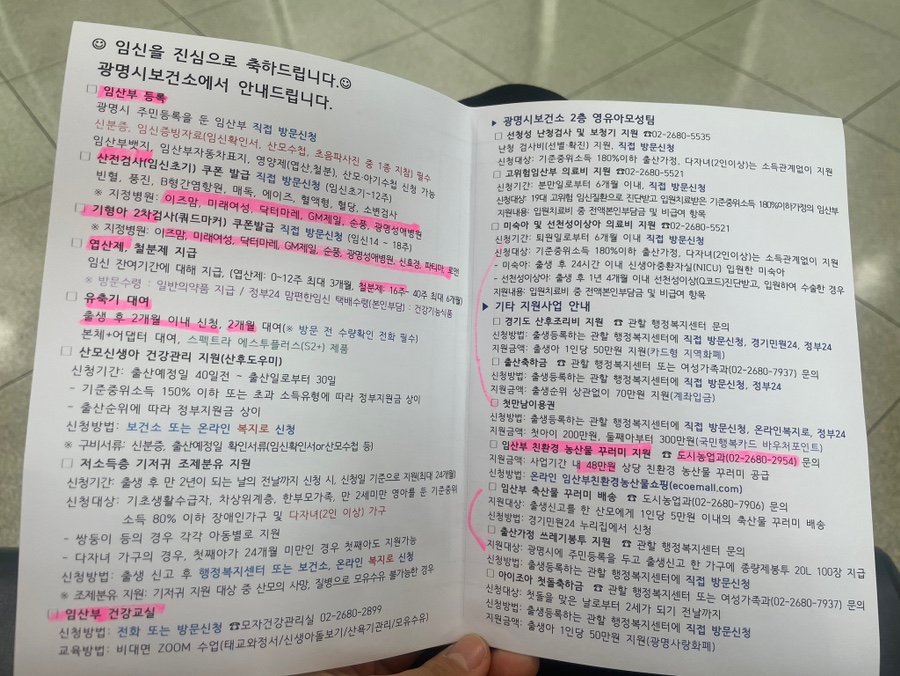 ☺ 임신을 진심으로 축하드립니다.☺
광명시보건소에서 안내드립니다.
□ 임산부 등록
광명시 주민등록을 둔 임산부 직접 방문신청
신분증, 임신증빙자료(임신확인서, 산모수첩, 초음파사진 중 1종 지참) 필수
임산부뱃지, 임산부자동차표지, 영양제(엽산,철분), 산모·아기수첩 신청 가능
□ 산전검사(임신초기) 쿠폰 발급 직접 방문신청 (임신초기~12주)
빈혈, 풍진, B형간염항원, 매독, 에이즈, 혈액형, 혈당, 소변검사
※ 지정병원: 이즈맘, 미래여성, 닥터마레, GM제일, 순풍, 광명성애병원
□ 기형아 2차검사(쿼드마커) 쿠폰발급 직접 방문신청 (임신14 ~ 18주)
※ 지정병원: 이즈맘, 미래여성, 닥터마레, GM제일, 순풍, 광명성애병원, 신효경, 파티마, 로안
□ 엽산제, 철분제 지급
임신 잔여기간에 대해 지급, (엽산제: 0~12주 최대 3개월, 철분제: 16주~ 40주 최대 6개월)
※ 방문수령 : 일반의약품 지급 / 정부24 맘편한임신 택배수령(본인부담) : 건강기능식품
□ 유축기 대여
출생 후 2개월 이내 신청, 2개월 대여(※ 방문 전 수량확인 전화 필수)
본체+어댑터 대여, 스펙트라 에스투플러스(S2+) 제품
□ 산모신생아 건강관리 지원(산후도우미)
신청기간: 출산예정일 40일전 ~ 출산일로부터 30일
- 기준중위소득 150% 이하 또는 초과 소득유형에 따라 정부지원금 상이
- 출산순위에 따라 정부지원금 상이
신청방법: 보건소 또는 온라인 복지로 신청
※ 구비서류: 신분증, 출산예정일 확인서류(임신확인서or산모수첩 등)
□ 저소득층 기저귀 조제분유 지원
신청기간: 출생 후 만 2년이 되는 날의 전날까지 신청 시, 신청일 기준으로 지원(최대 24개월)
신청대상: 기초생활수급자, 차상위계층, 한부모가족, 만 2세미만 영아를 둔 기준중위
소득 80% 이하 장애인가구 및 다자녀(2인 이상) 가구
- 쌍둥이 등의 경우 각각 아동별로 지원
- 다자녀 가구의 경우, 첫째아가 24개월 미만인 경우 첫째아도 지원가능
신청방법: 출생 신고 후 행정복지센터 또는 보건소, 온라인 복지로 신청
※ 조제분유 지원: 기저귀 지원 대상 중 산모의 사망, 질병으로 모유수유 불가능한 경우
□ 임산부 건강교실
신청방법: 전화 또는 방문신청 ☎모자건강관리실 02-2680-2899
교육방법: 비대면 ZOOM 수업(태교와정서/신생아돌보기/산욕기관리/모유수유)
▶ 광명시보건소 2층 영유아모성팀
□ 선천성 난청검사 및 보청기 지원 ☎02-2680-5535
난청 검사비(선별·확진) 지원, 직접 방문신청
신청대상: 기준중위소득 180%이하 출산가정, 다자녀(2인이상)는 소득관계없이 지원
□ 고위험임산부 의료비 지원 ☎02-2680-5521
신청기간: 분만일로부터 6개월 이내, 직접 방문신청
신청대상: 19대 고위험 임신질환으로 진단받고 입원치료받은 기준중위소득 180%이하가정의 임산부
지원내용: 입원치료비 중 전액본인부담금 및 비급여 항목
□ 미숙아 및 선천성이상아 의료비 지원 ☎02-2680-5521
신청기간: 퇴원일로부터 6개월 이내 직접 방문신청
신청대상: 기준중위소득 180%이하 출산가정, 다자녀(2인이상)는 소득관계없이 지원
- 미숙아: 출생 후 24시간 이내 신생아중환자실(NICU) 입원한 미숙아
- 선천성이상아: 출생 후 1년 4개월 이내 선천성이상(Q코드)진단받고, 입원하여 수술한 경우
지원내용: 입원치료비 중 전액본인부담금 및 비급여 항목
▶ 기타 지원사업 안내
□ 경기도 산후조리비 지원 ☎ 관할 행정복지센터 문의
신청방법: 출생등록하는 관할 행정복지센터에 직접 방문신청, 경기민원24, 정부24
지원금액: 출생아 1인당 50만원 지원(카드형 지역화폐)
□ 출산축하금 ☎ 관할 행정복지센터 또는 여성가족과(02-2680-7937) 문의
신청방법: 출생등록하는 관할 행정복지센터에 직접 방문신청, 정부24
지원금액: 출생순위 상관없이 70만원 지원(계좌입금)
□ 첫만남이용권
신청방법: 출생등록하는 관할 행정복지센터에 직접 방문신청, 온라인복지로, 정부24
지원금액: 첫아이 200만원, 둘째아부터 300만원(국민행복카드 바우처포인트)
□ 임산부 친환경 농산물 꾸러미 지원 ☎ 도시농업과(02-2680-2954) 문의
지원금액: 사업기간 내 48만원 상당 친환경 농산물 꾸러미 공급
신청방법: 온라인 임산부친환경농산물쇼핑(ecoemall.com)
□ 임산부 축산물 꾸러미 배송 ☎ 도시농업과(02-2680-7906) 문의
지원대상: 출생신고를 한 산모에게 1인당 5만원 이내의 축산물 꾸러미 배송
신청방법: 경기민원24 누리집에서 신청
□ 출산가정 쓰레기봉투 지원 ☎ 관할 행정복지센터 문의
지원대상: 광명시에 주민등록을 두고 출생신고 한 가구에 종량제봉투 20L 100장 지급
신청방법: 출생등록하는 관할 행정복지센터에 직접 방문신청
□ 아이조아 첫돌축하금 ☎ 관할 행정복지센터 또는 여성가족과(02-2680-7937) 문의
지원대상: 첫돌을 맞은 날로부터 2세가 되기 전날까지
신청방법: 출생등록하는 관할 행정복지센터에 직접 방문신청
지원금액: 출생아 1인당 50만원 지원(광명사랑화폐)